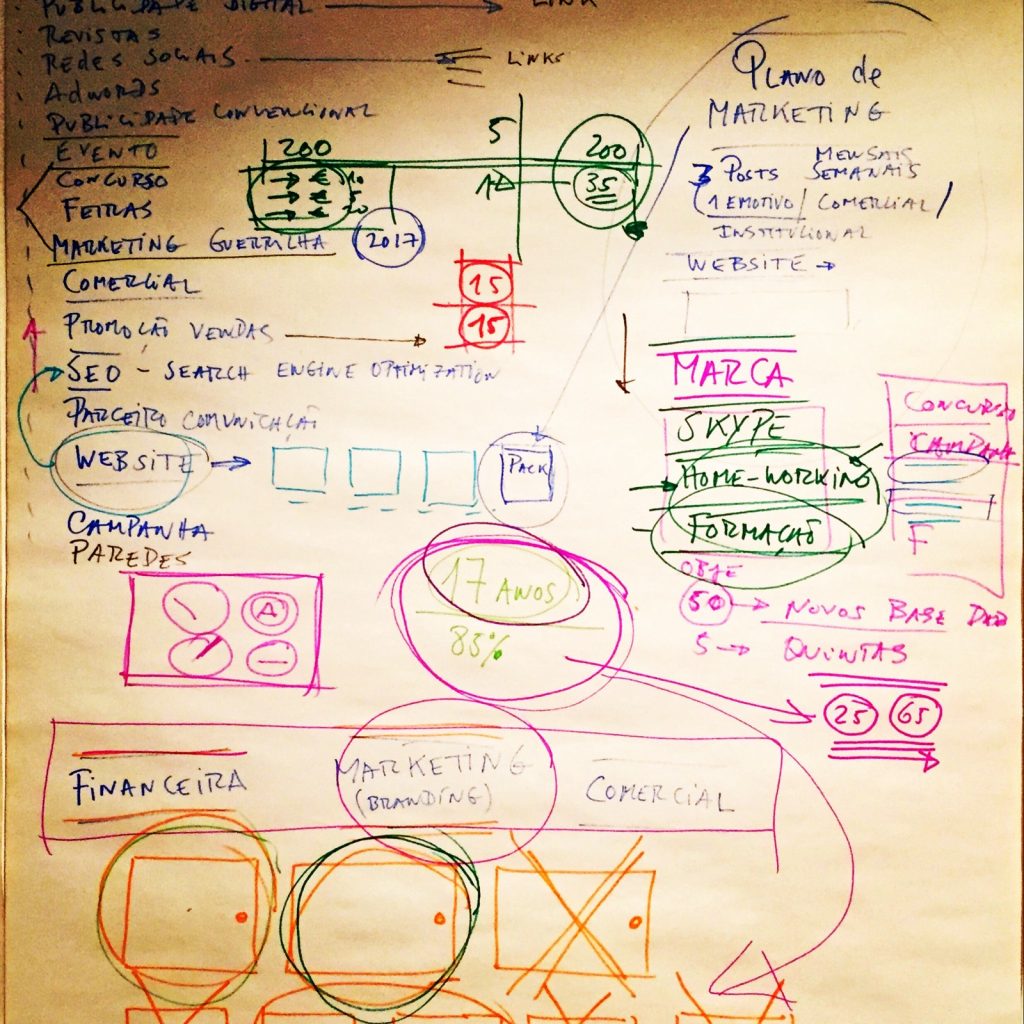 PUBLICIDADE DIGITAL LINK
REVISTAS
REDES SOCIAIS LINKS
ADWORDS
PUBLICIDADE CONVENCIONAL
EVENTO
CONCURSO
FEIRAS
MARKETING GUERRILHA
COMERCIAL
PROMOÇÃO VENDAS
SEO - SEARCH ENGINE OPTIMIZATION
PARCEIRO COMUNICAÇÃO
WEBSITE
PACK
CAMPANHA
PAREDES
200
5
200
€ 10
€ 5
€ 20
35
2017
15
15
PLANO de
MARKETING
MENSAIS
3 POSTS SEMANAIS
(1 EMOTIVO/ COMERCIAL/
INSTITUCIONAL
WEBSITE
MARCA
SKYPE
HOME-WORKING
FORMAÇÃO
CONCURSO
CAMPANHA
F
OBJE
50 NOVOS BASE DAD
5 QUINTAS
25 65
A
17 ANOS
83%
FINANCEIRA
MARKETING
(BRANDING)
COMERCIAL